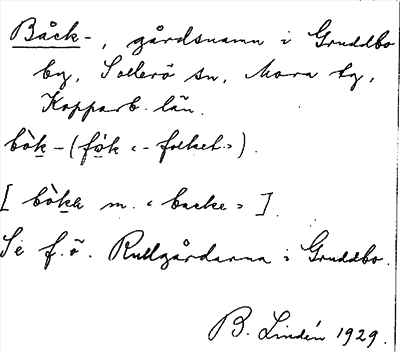 Båck-, gårdsnamn i Gruddbo
by, Sollerö sn, Mora tg,
Kopparb. län.
bòk - (fók «-folket»).
[bòka m. «backe»].
Se f.ö. Rullgårdarna i Gruddbo.
B. Lindén 1929.